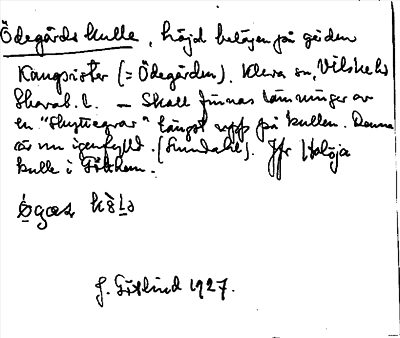 Ödegårds kulle, höjd belägen på gården
Kungsrister (= Ödegården). Kleva sn, Vilske hd
Skarab. l. – Skall finnas lämningar av
en "skyttegrav" längst upp på kullen. Denna
är nu igenfylld. (Sundahl). Jfr Haböja
kulle i Slöthem.
J. Götlind 1927.